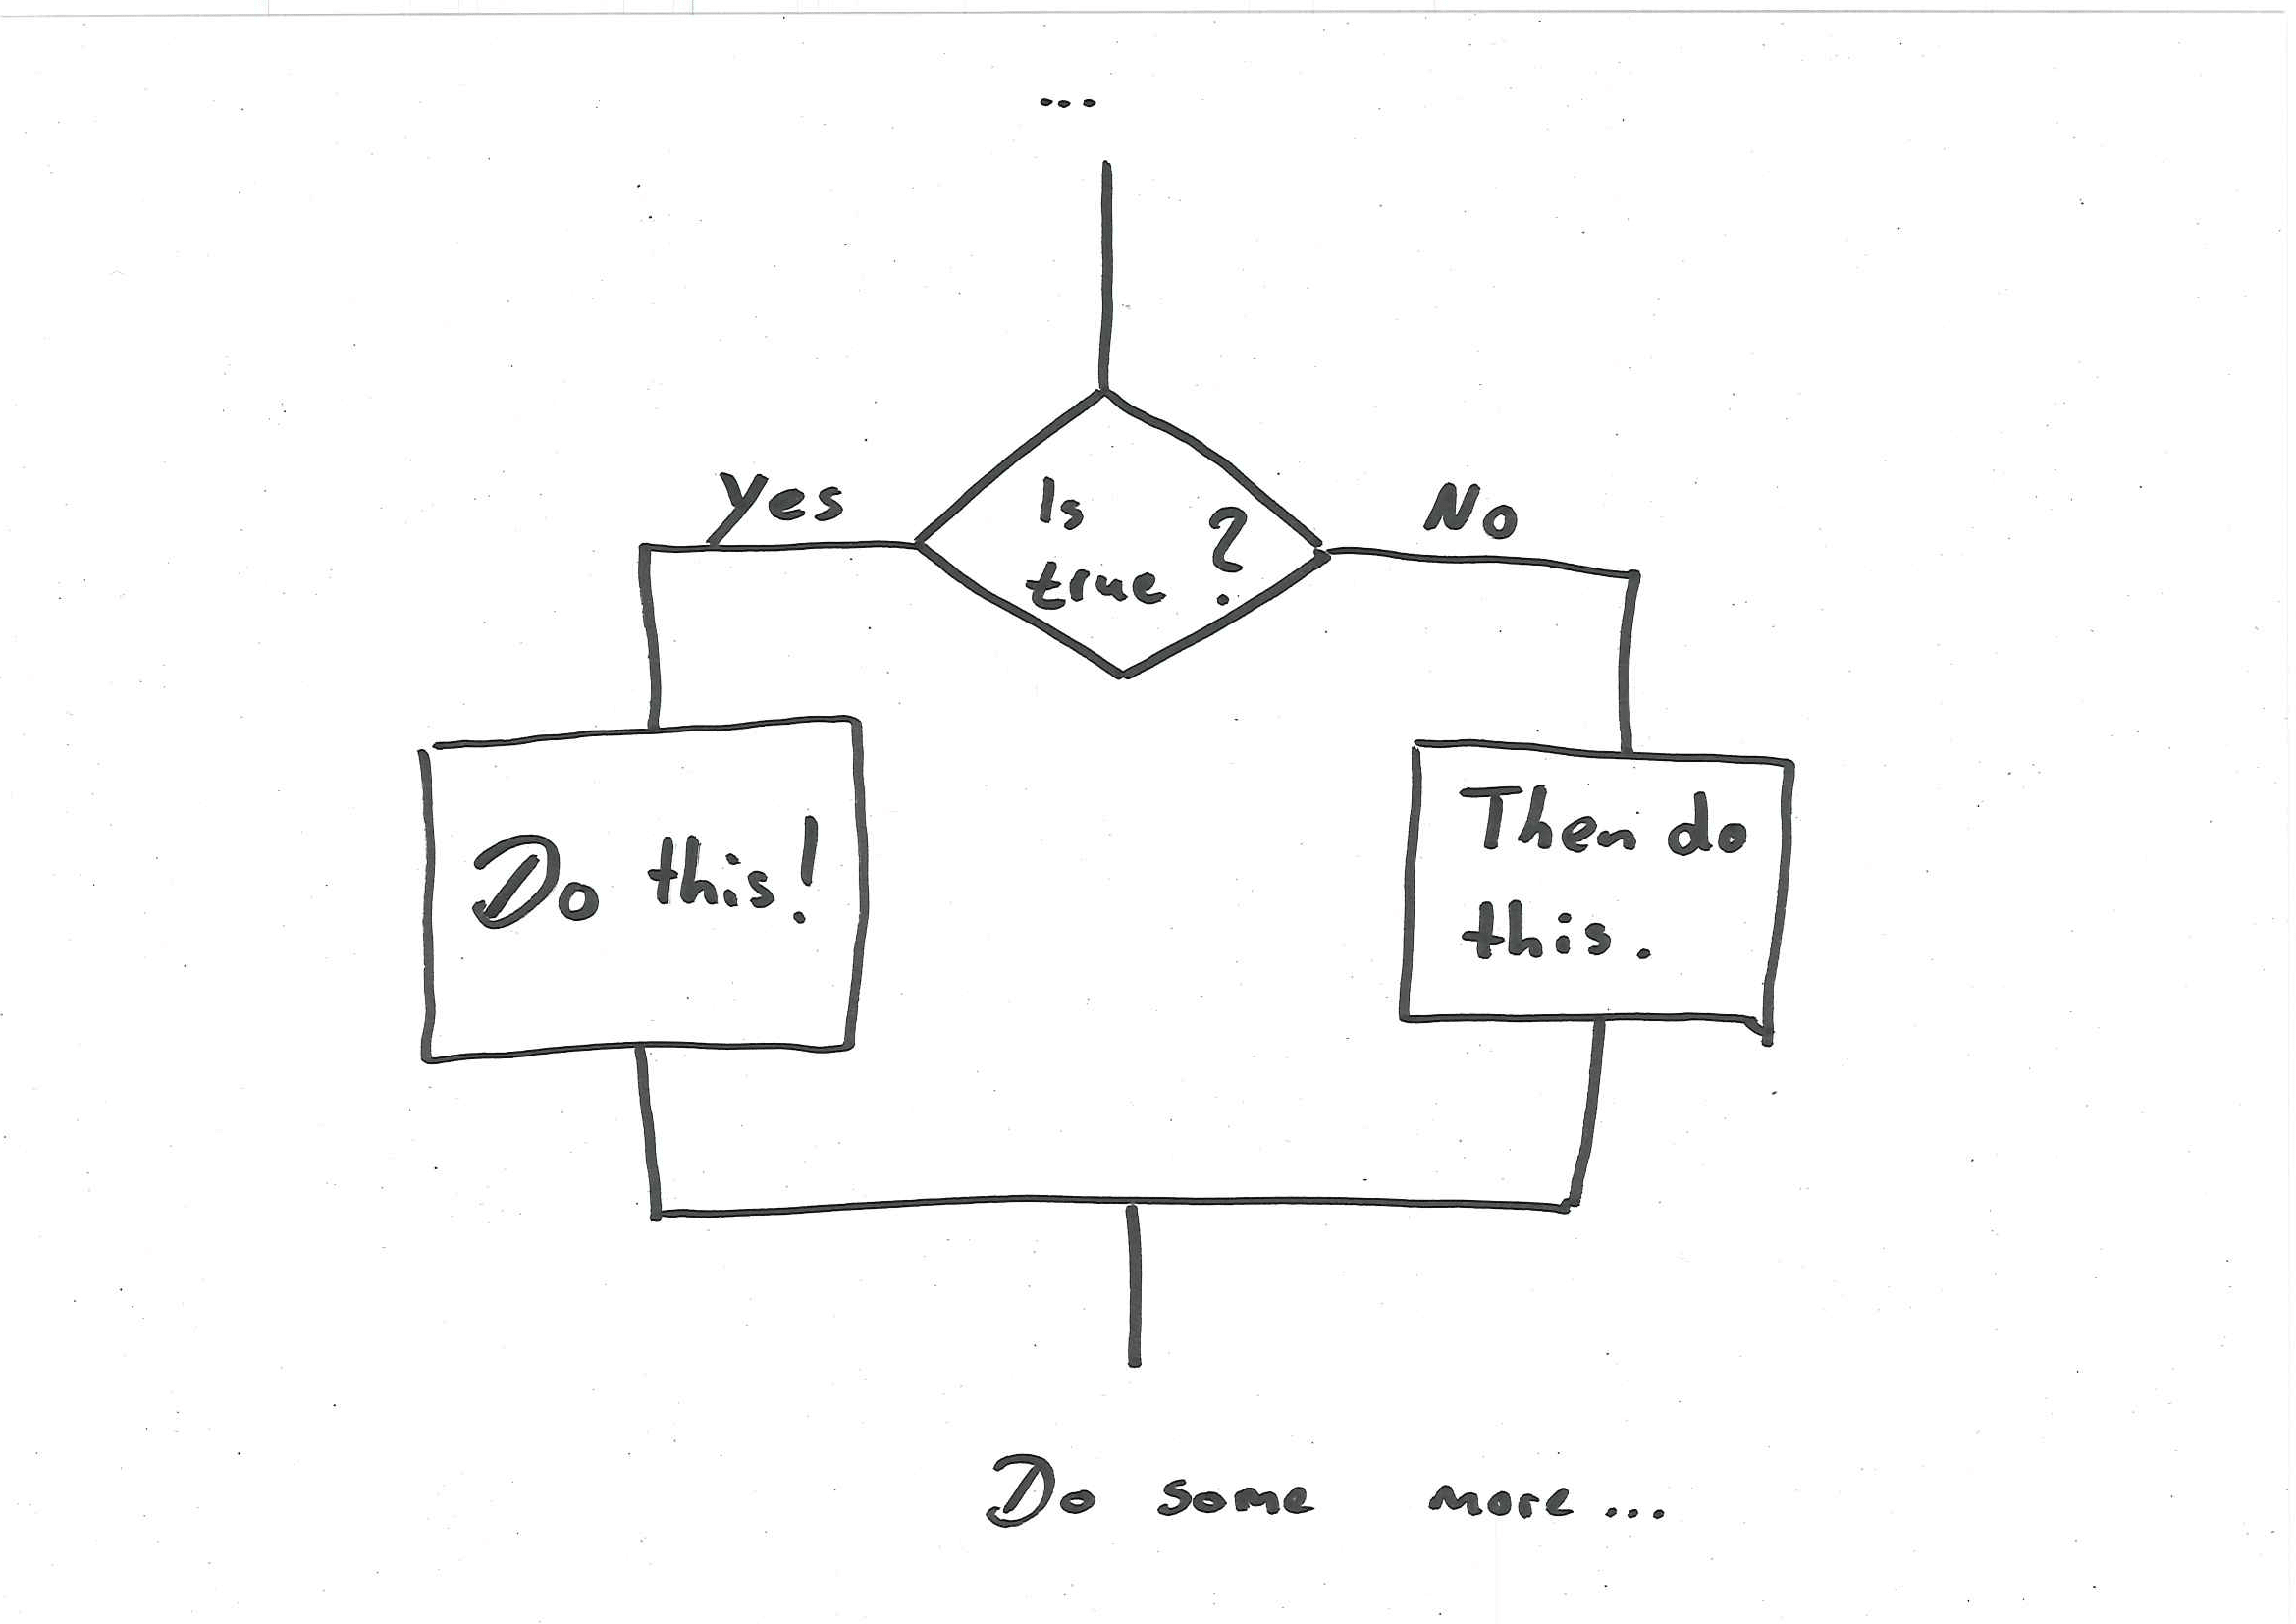 ...
Yes
Is
true ?
No
Do this!
Then do
this.
Do some more...